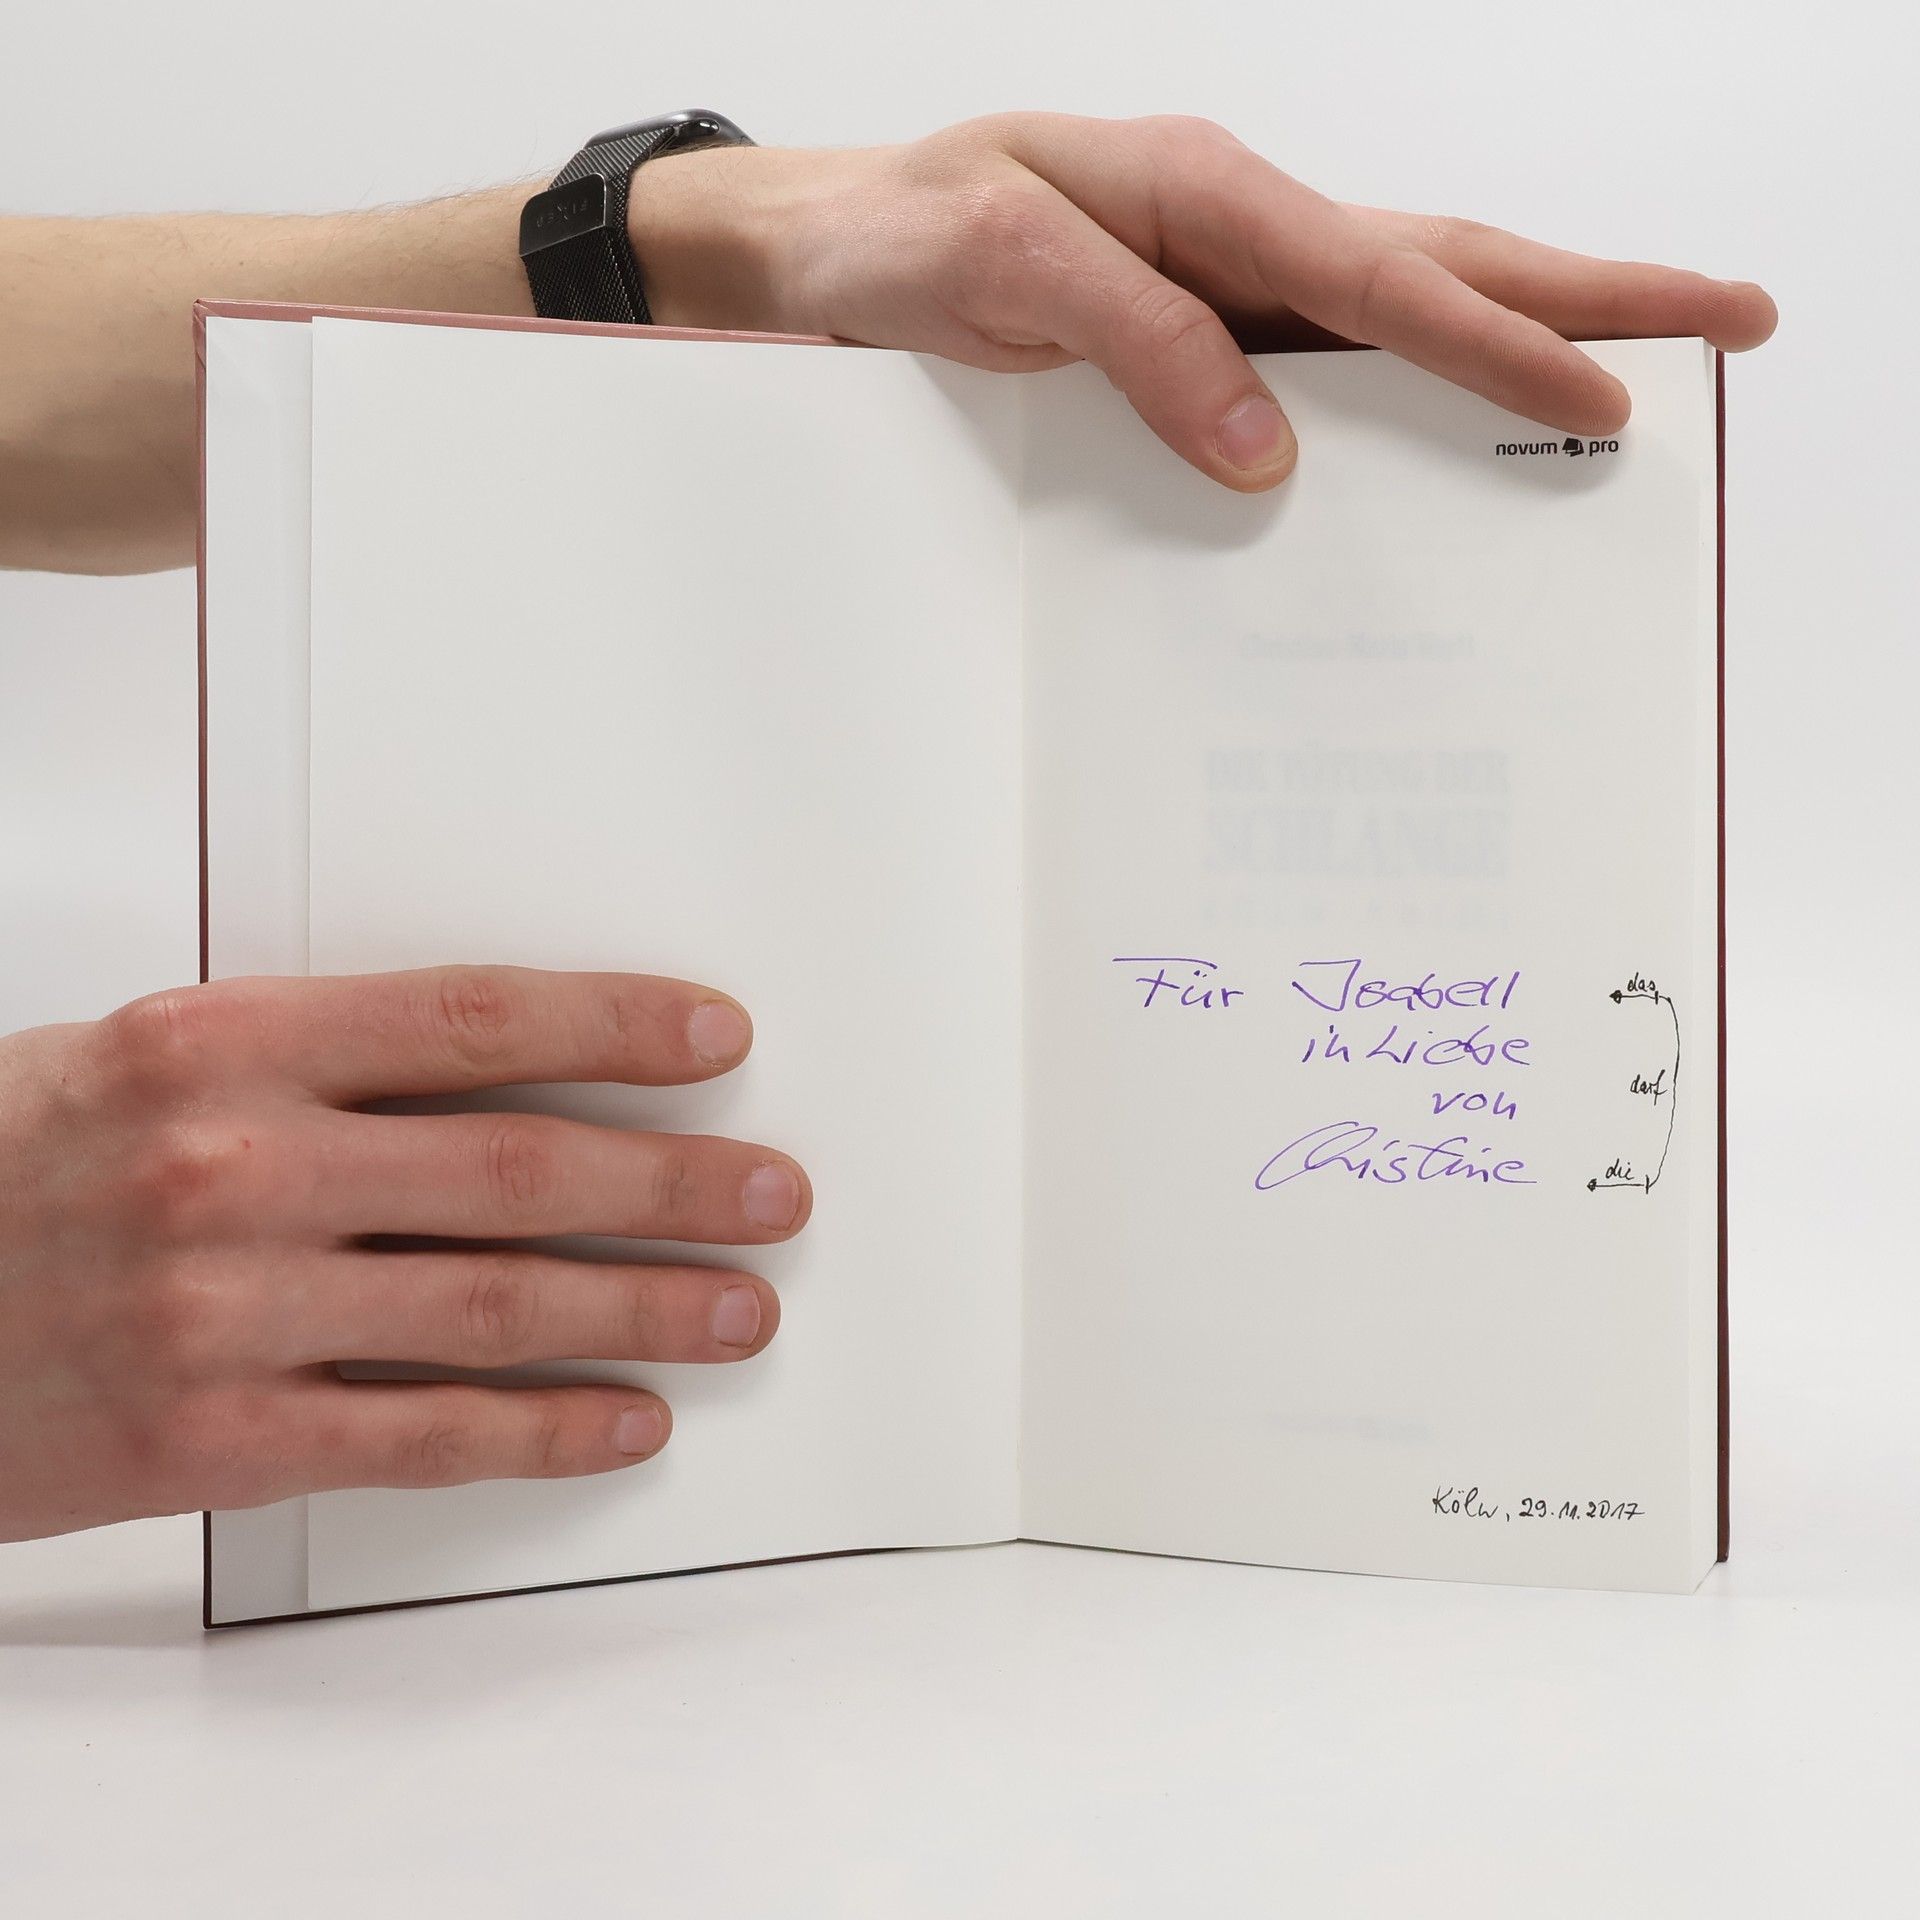 FIXED
novum pro
DIE TÖTUNG DER
SCHLANGE
Für Isabell
das
in Liebe
darf
von
die
Christine
Köln, 29.11.2017